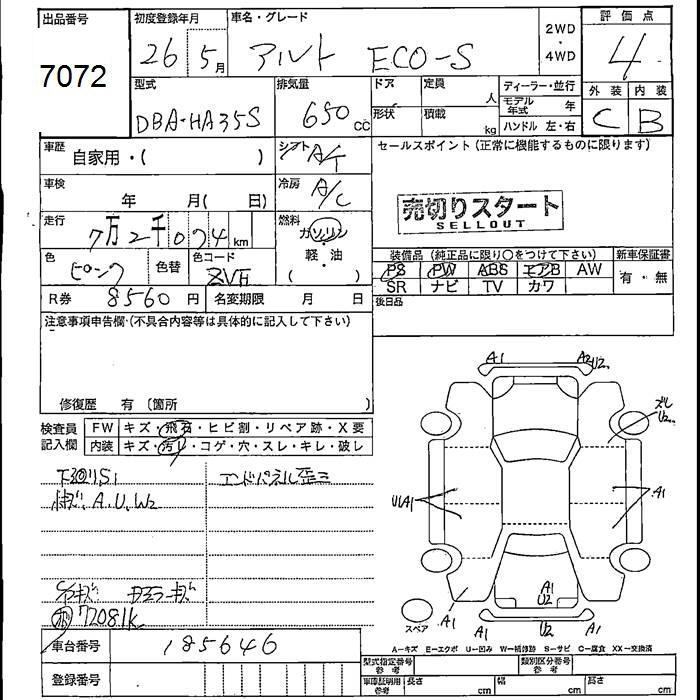 出品番号 初度登録年月 車名・グレード 2WD・4WD 評価点
7072 26年5月 アルト ECO-S 4
型式 排気量 ドア 定員 人 ディーラー・並行 外装 内装
DBA-HA35S 650cc 形状 積載 kg モデル年式 年 C B
ハンドル 左・右
車歴 自家用・( ) シフト A/T セールスポイント (正常に機能するものに限ります)
車検 年 月( 日) 冷房 A/C
売切りスタート
SELLOUT
走行 7万2千074km 燃料 ガソリン・軽・油 ( )
色 ピンク 色替 色コード ZVH
装備品 (純正品に限り○をつけて下さい) 新車保証書
PS PW ABS エアB AW 有・無
SR ナビ TV カワ
R券 8560円 名変期限 月 日 後日品
注意事項申告欄・(不具合内容等は具体的に記入して下さい)
修復歴 有 〔箇所 〕
検査員記入欄 FW キズ・飛石・ヒビ割・リペア跡・X要
内装 キズ・汚れ・コゲ・穴・スレ・キレ・破し
下廻りS1 エンドパネル歪ミ
A.U.W2
72081k
車台番号 185646
登録番号
A1 A2 U2
ズレ U2
U1A1 A1
A1 U2
スペア A1 A1 U2 A1
A-キズ E-エクボ U-凹み W-補修跡 S-サビ C-腐食 XX-交換済
型式指定番号 参考 類別区分番号 参考
車庫証明用 参考 長さ cm 幅 cm 高さ cm